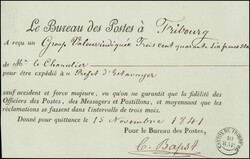 Le Bureau des Postes à Fribourg
A reçu un Group Valeur indiquée Trois cent quarante six francs
de Mr. le Chancelier
pour être expédié à Mr. Préfet d'Estavayer
sauf accident et force majeure, vu qu'on ne garantit que la fidélité des
Officiers des Postes, des Messagers et Postillons, et moyennant que les
réclamations se fassent dans l'intervalle de trois mois.
Donné pour quittance le 15 Novembre 1841
Pour le Bureau des Postes,
C. Bapst